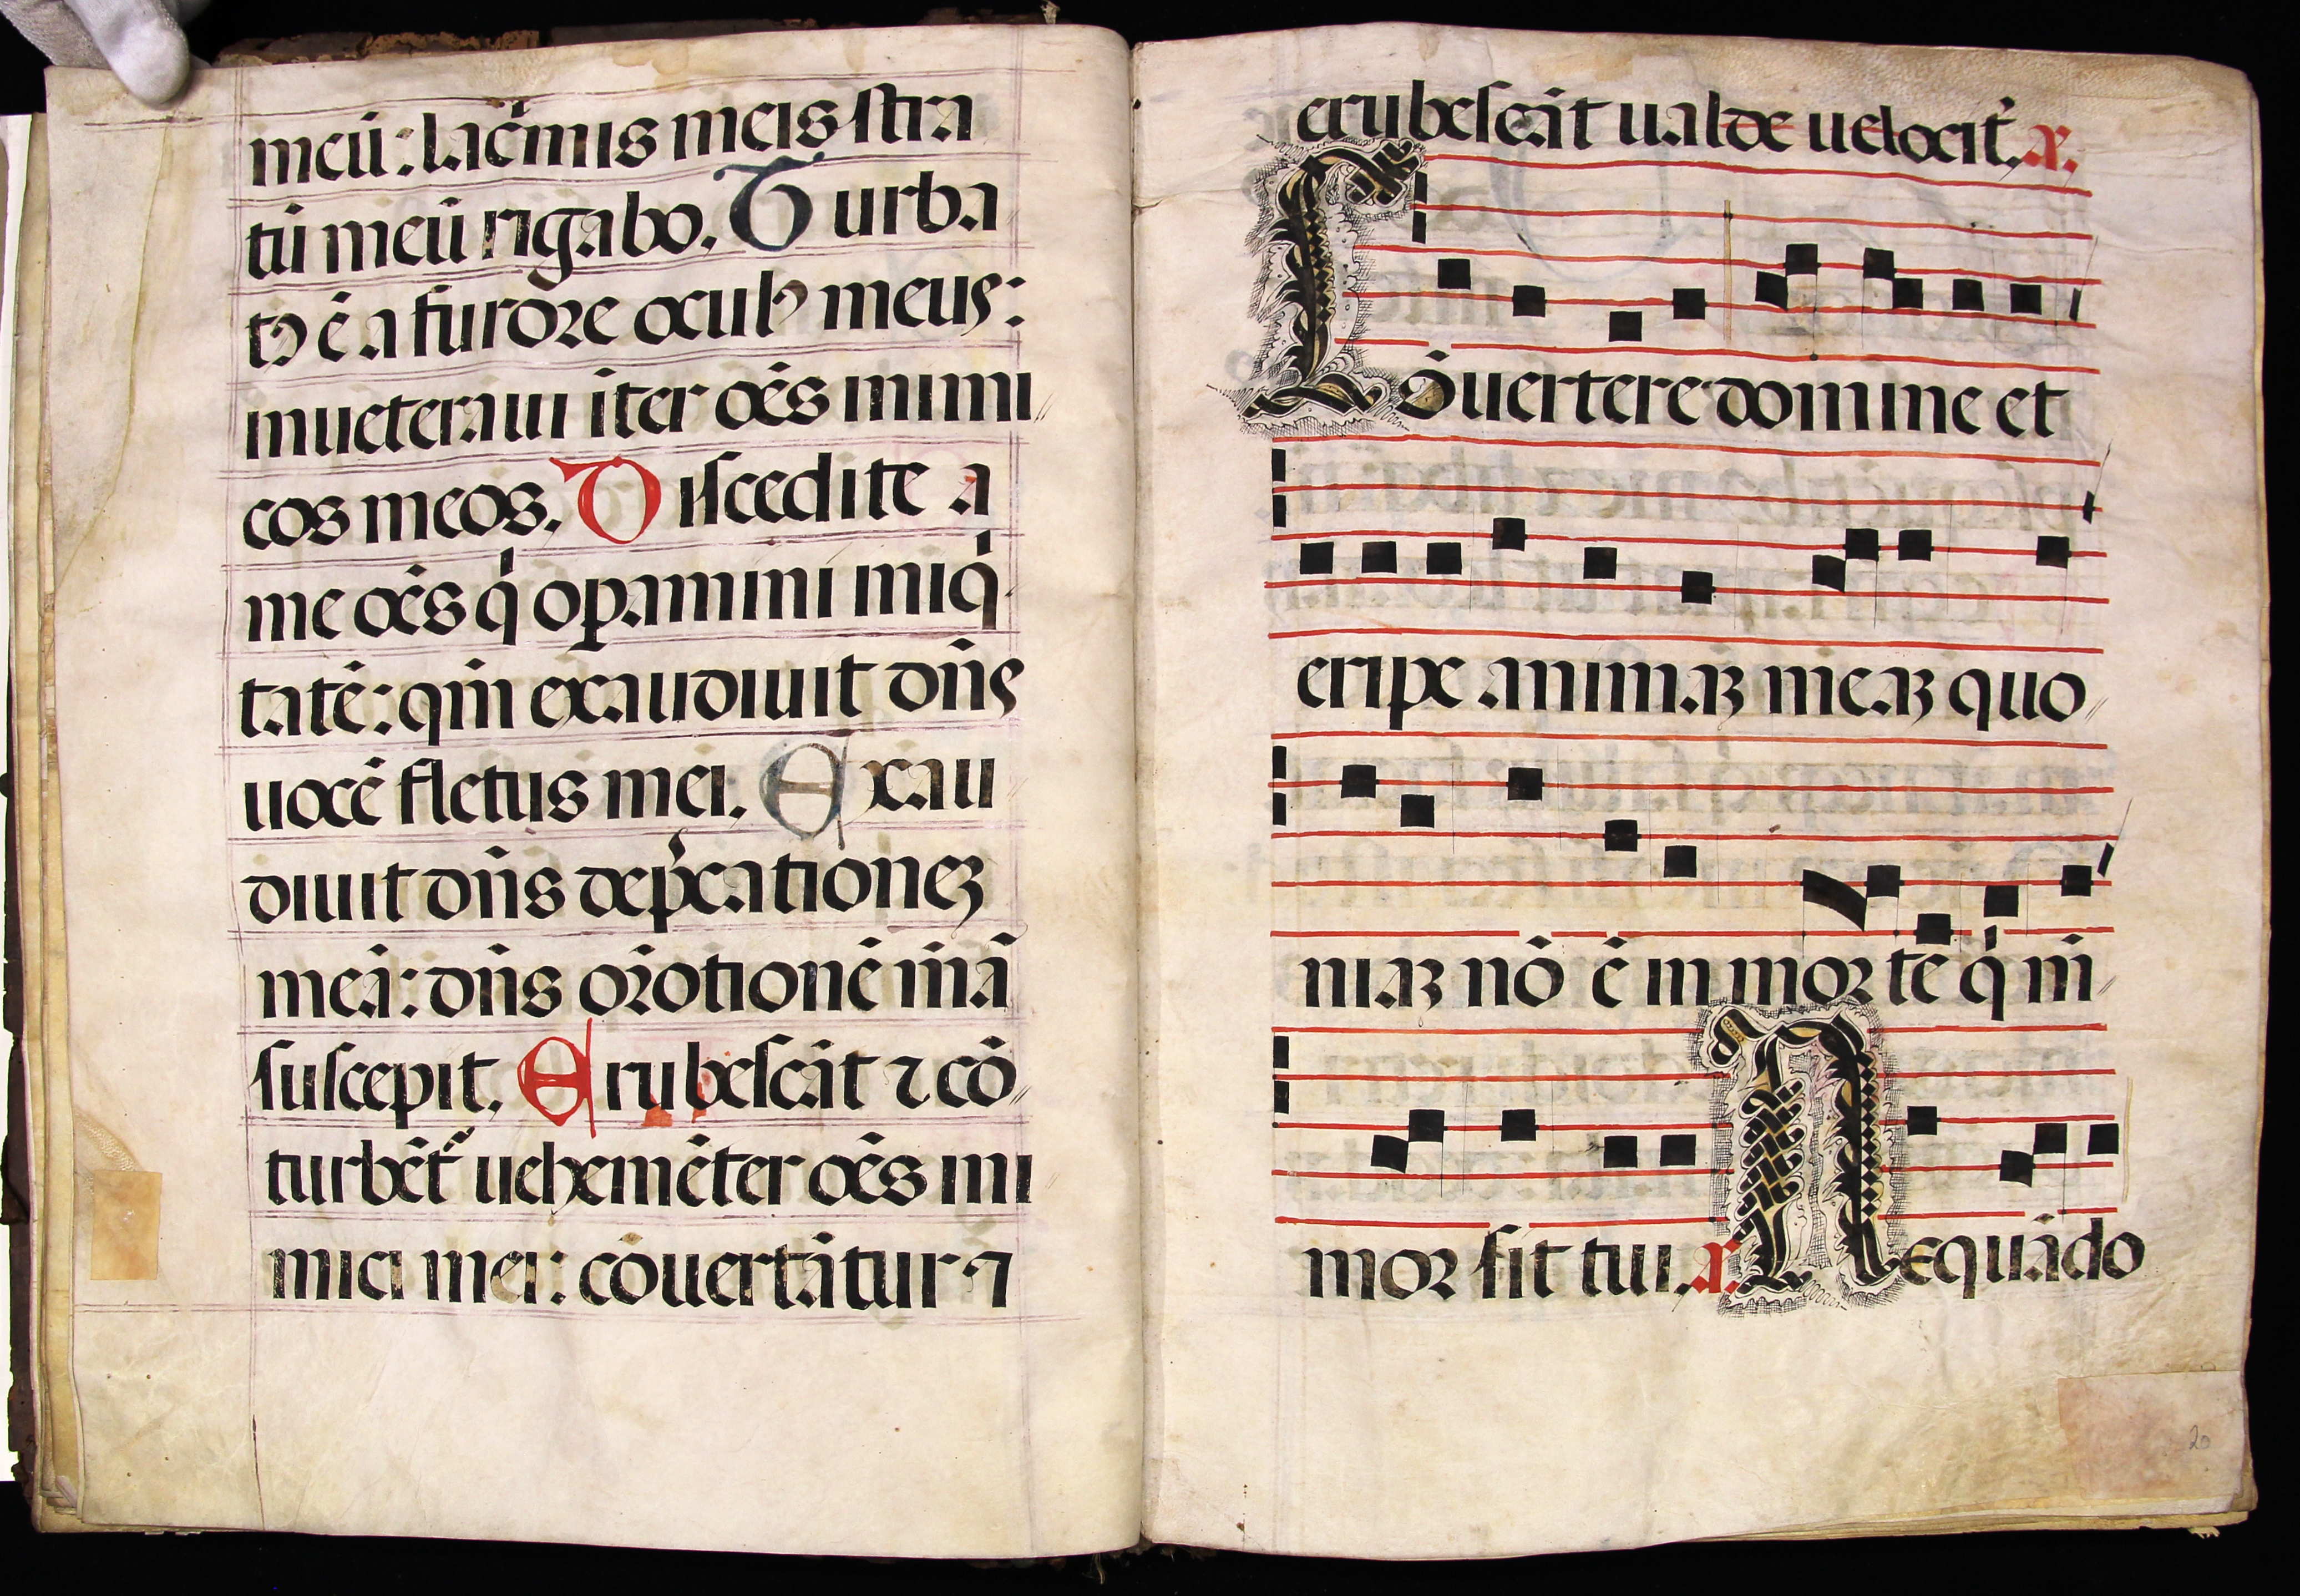 meū: lac̄mis meis stra
tū meū rigabo. Turba
tꝰ ē a furore oculꝰ meus:
inueteraui īter oēs inimi
cos meos. Discedite a
me oēs q̇ opamini iniq̇
tatē: qm̄ exaudiuit dn̄s
uocē fletus mei. Exau
diuit dn̄s dep̄cationeʒ
meā: dn̄s orōtionē m̄ā
suscepit. Erubescāt ⁊ cō
turbēt᷑ uehemēter oēs ini
mici mei: cōuertātur ⁊
erubescāt ualde uelocit̄. a.
Cōuertere domine et
eripe animaʒ meaʒ quo
niaʒ nō ē in morte q̇ m̄
mor sit tui. a. Nequādo
20